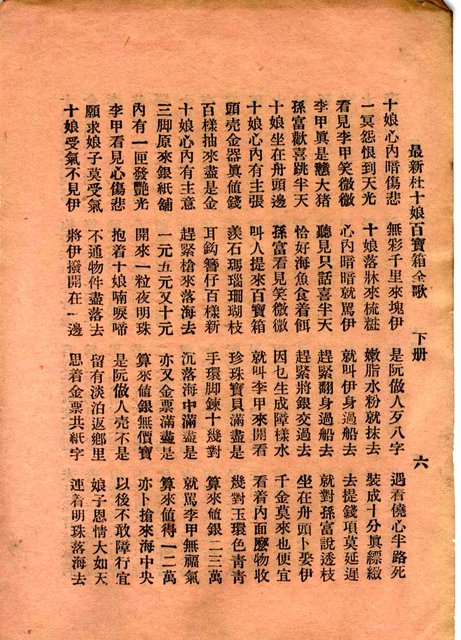 最新杜十娘百寶箱全歌　下册　六
十娘心內暗傷悲　無彩千里來塊伊　是阮做人歹八字　遇着僥心半路死
一冥怨恨到天光　十娘落牀來梳粧　嫩脂水粉就抹去　裝成十分眞縹緻
看見李甲笑微微　心內暗暗就罵伊　就叫伊身過船去　去提錢項莫延遲
李甲眞是戇大猪　聽見只話喜半天　趕緊翻身過船去　就對孫富說透枝
孫富歡喜跳半天　恰好海魚食着餌　趕緊將銀交過去　坐在舟頭卜娶伊
十娘坐在舟頭邊　孫富看見笑微微　因乜生成障樣水　千金莫來也便宜
十娘心內有主張　叫人提來百寶箱　就叫李甲來開看　看着內面麽物收
頭壳金器眞値錢　羡石瑪瑙珊瑚枝　珍珠寶貝滿盡是　幾對玉環色靑靑
百樣抽來盡是金　耳鈎簪仔百樣新　手環脚鍊十幾對　算來値銀二三萬
十娘心內有主意　趕緊槍來落海去　沉落海中滿盡是　就罵李甲無福氣
三脚原來銀紙舖　一元五元又十元　亦又金票滿盡是　算來値得一二萬
內有一匣發艷光　開來一粒夜明珠　算來値銀無價寶　亦卜搶來海中央
李甲看見心傷悲　抱着十娘喃唳啼　是阮做人壳不是　以後不敢障行宜
願求娘子莫受氣　不通物件盡落去　留有淡泊返鄉里　娘子恩情大如天
十娘受氣不見伊　將伊撥開在一邊　思着金票共紙字　連着明珠落海去